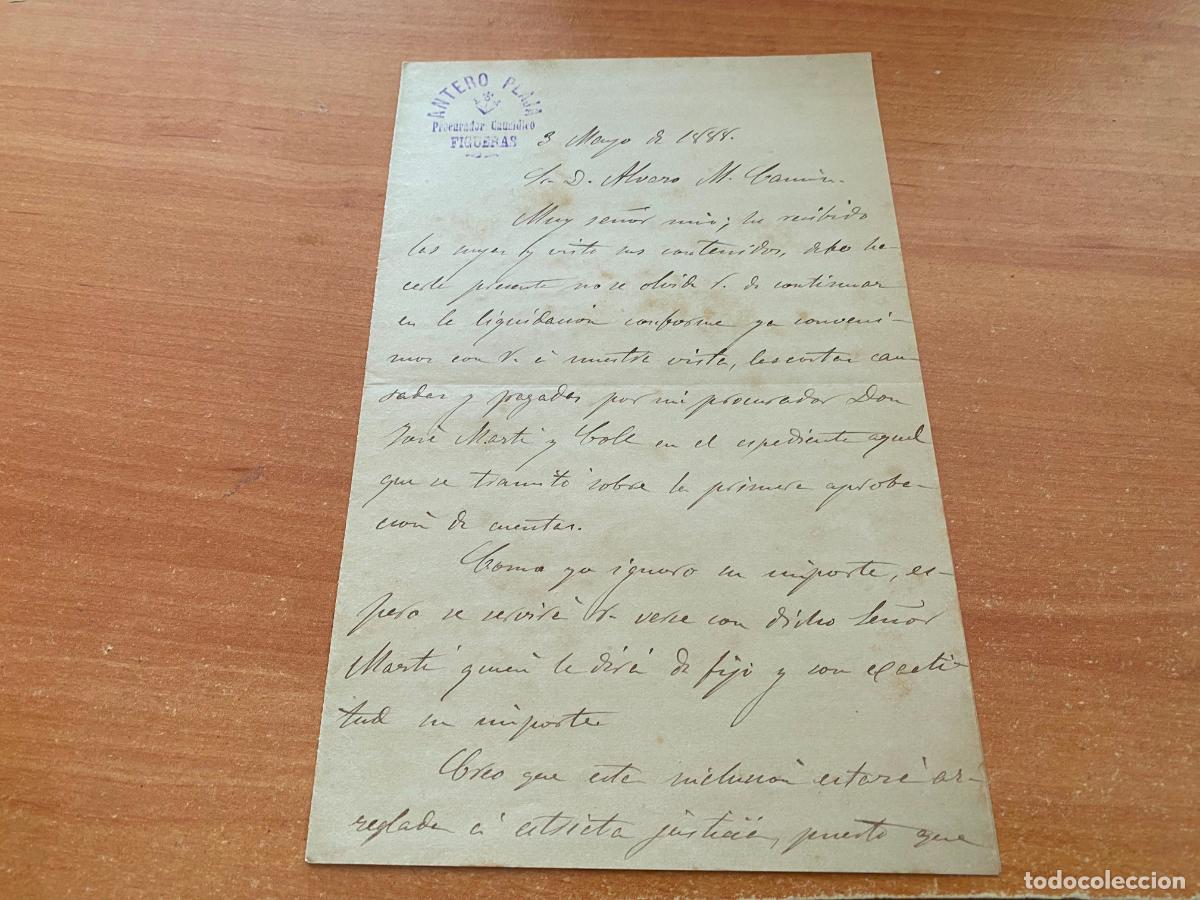 ANTERO PLAJA
Procurador Causídico
FIGUERAS
3 Mayo de 1888.
Sr. D. Alvaro M. Camin.
Muy señor mio; he recibido
las suyas y visto sus contenidos, debo ha-
cerle presente no se olvide V. de continuar
en la liquidación conforme ya conveni-
mos con V. á nuestra vista, las costas cau-
sadas y pagadas por mi procurador Don
José Martí y Coll en el espediente aquel
que se tramitó sobre la primera aproba-
ción de cuentas.
Como yo ignoro su importe, es-
pero se servirá V. verse con dicho Señor
Martí quien le dirá de fijo y con exacti-
tud su importe
Creo que esta inclusión estará ar-
reglada á estricta justicia, puesto que
todocoleccion